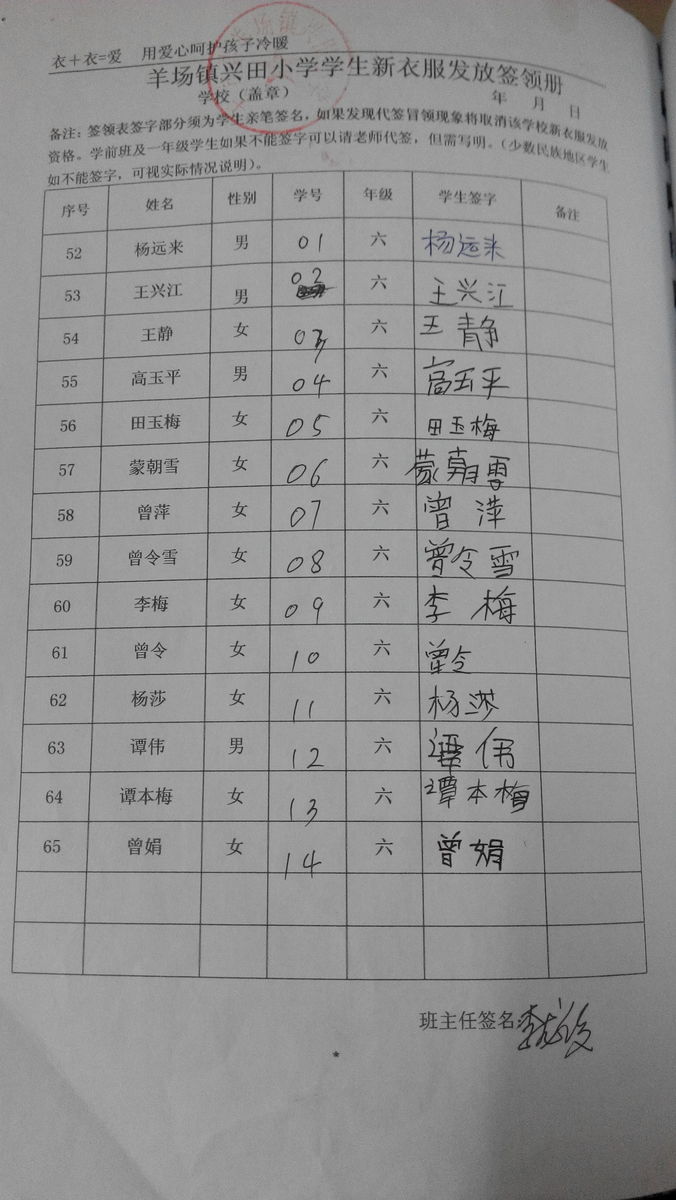 衣+衣=爱 用爱心呵护孩子冷暖
羊场镇兴田小学学生新衣服发放签领册
学校(盖章) 年 月 日
备注:签领表签字部分须为学生亲笔签名,如果发现代签冒领现象将取消该学校新衣服发放
资格。学前班及一年级学生如果不能签字可以请老师代签,但需写明。(少数民族地区学生
如不能签字,可视实际情况说明)。
序号 姓名 性别 学号 年级 学生签字 备注
52 杨远来 男 01 六 杨远来
53 王兴江 男 02 六 王兴江
54 王静 女 03 六 王静
55 高玉平 男 04 六 高玉平
56 田玉梅 女 05 六 田玉梅
57 蒙朝雪 女 06 六 蒙朝雪
58 曾萍 女 07 六 曾萍
59 曾令雪 女 08 六 曾令雪
60 李梅 女 09 六 李梅
61 曾令 女 10 六 曾令
62 杨莎 女 11 六 杨莎
63 谭伟 男 12 六 谭伟
64 谭本梅 女 13 六 谭本梅
65 曾娟 女 14 六 曾娟
班主任签名: